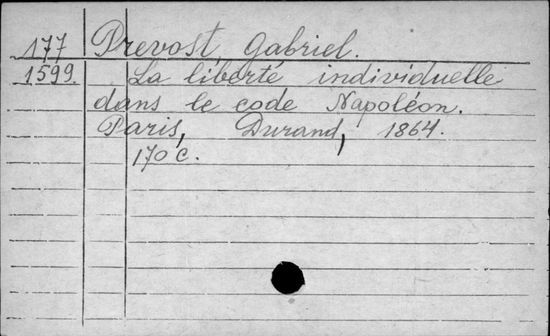 177 Prevost, Gabriel.
1599. La liberté individuelle
dans le code Napoléon.
Paris, Durand, 1864.
170 c.